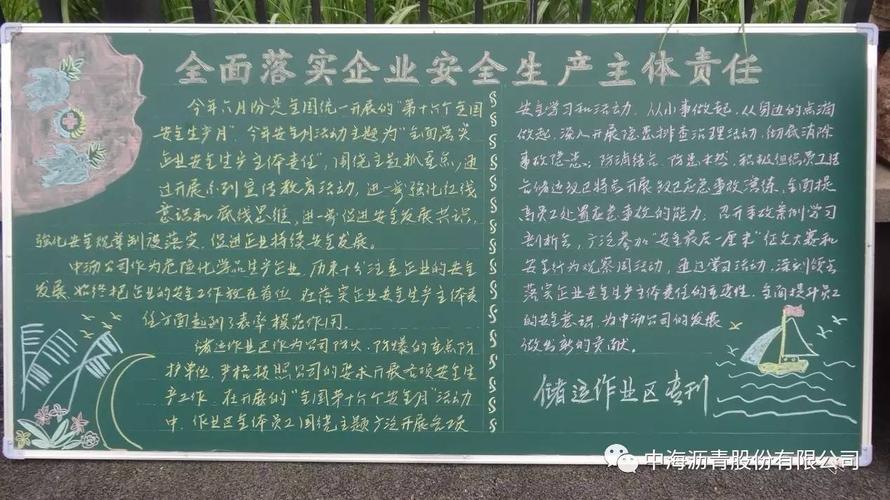 全面落实企业安全生产主体责任
今年六月份是全国统一开展的"第十六个全国
安全生产月"。今年安全月活动主题为"全面落实
企业安全生产主体责任",围绕主题抓重点,通
过开展系列宣传教育活动,进一步强化红线
意识和底线思维,进一步促进安全发展共识,
强化安全规章制度落实,促进企业持续安全发展。
中沥公司作为危险化学品生产企业,历来十分注重企业的安全
发展,始终把企业的安全工作放在首位,在落实企业安全生产主体责
任方面起到了表率模范作用。
储运作业区作为公司防火、防爆的重点防
护单位,严格按照公司的要求开展各项安全生
产工作。在开展的"全国第十六个安全月"活动
中,作业区全体员工围绕主题广泛开展各项
安全学习和活动。从小事做起,从身边的点滴
做起,深入开展隐患排查治理活动,彻底消除
事故隐患。防消结合、防患未然,积极组织员工结
合储运特点开展应急事故演练,全面提
高员工处置应急事故的能力。召开事故案例学习
剖析会,广泛参加"安全最后一厘米"征文大赛和
安全行为观察周活动,通过学习活动,深刻领会
落实企业安全生产主体责任的重要性,全面提升员工
的安全意识,为中沥公司的发展
做出新的贡献。
储运作业区专刊
中海沥青股份有限公司